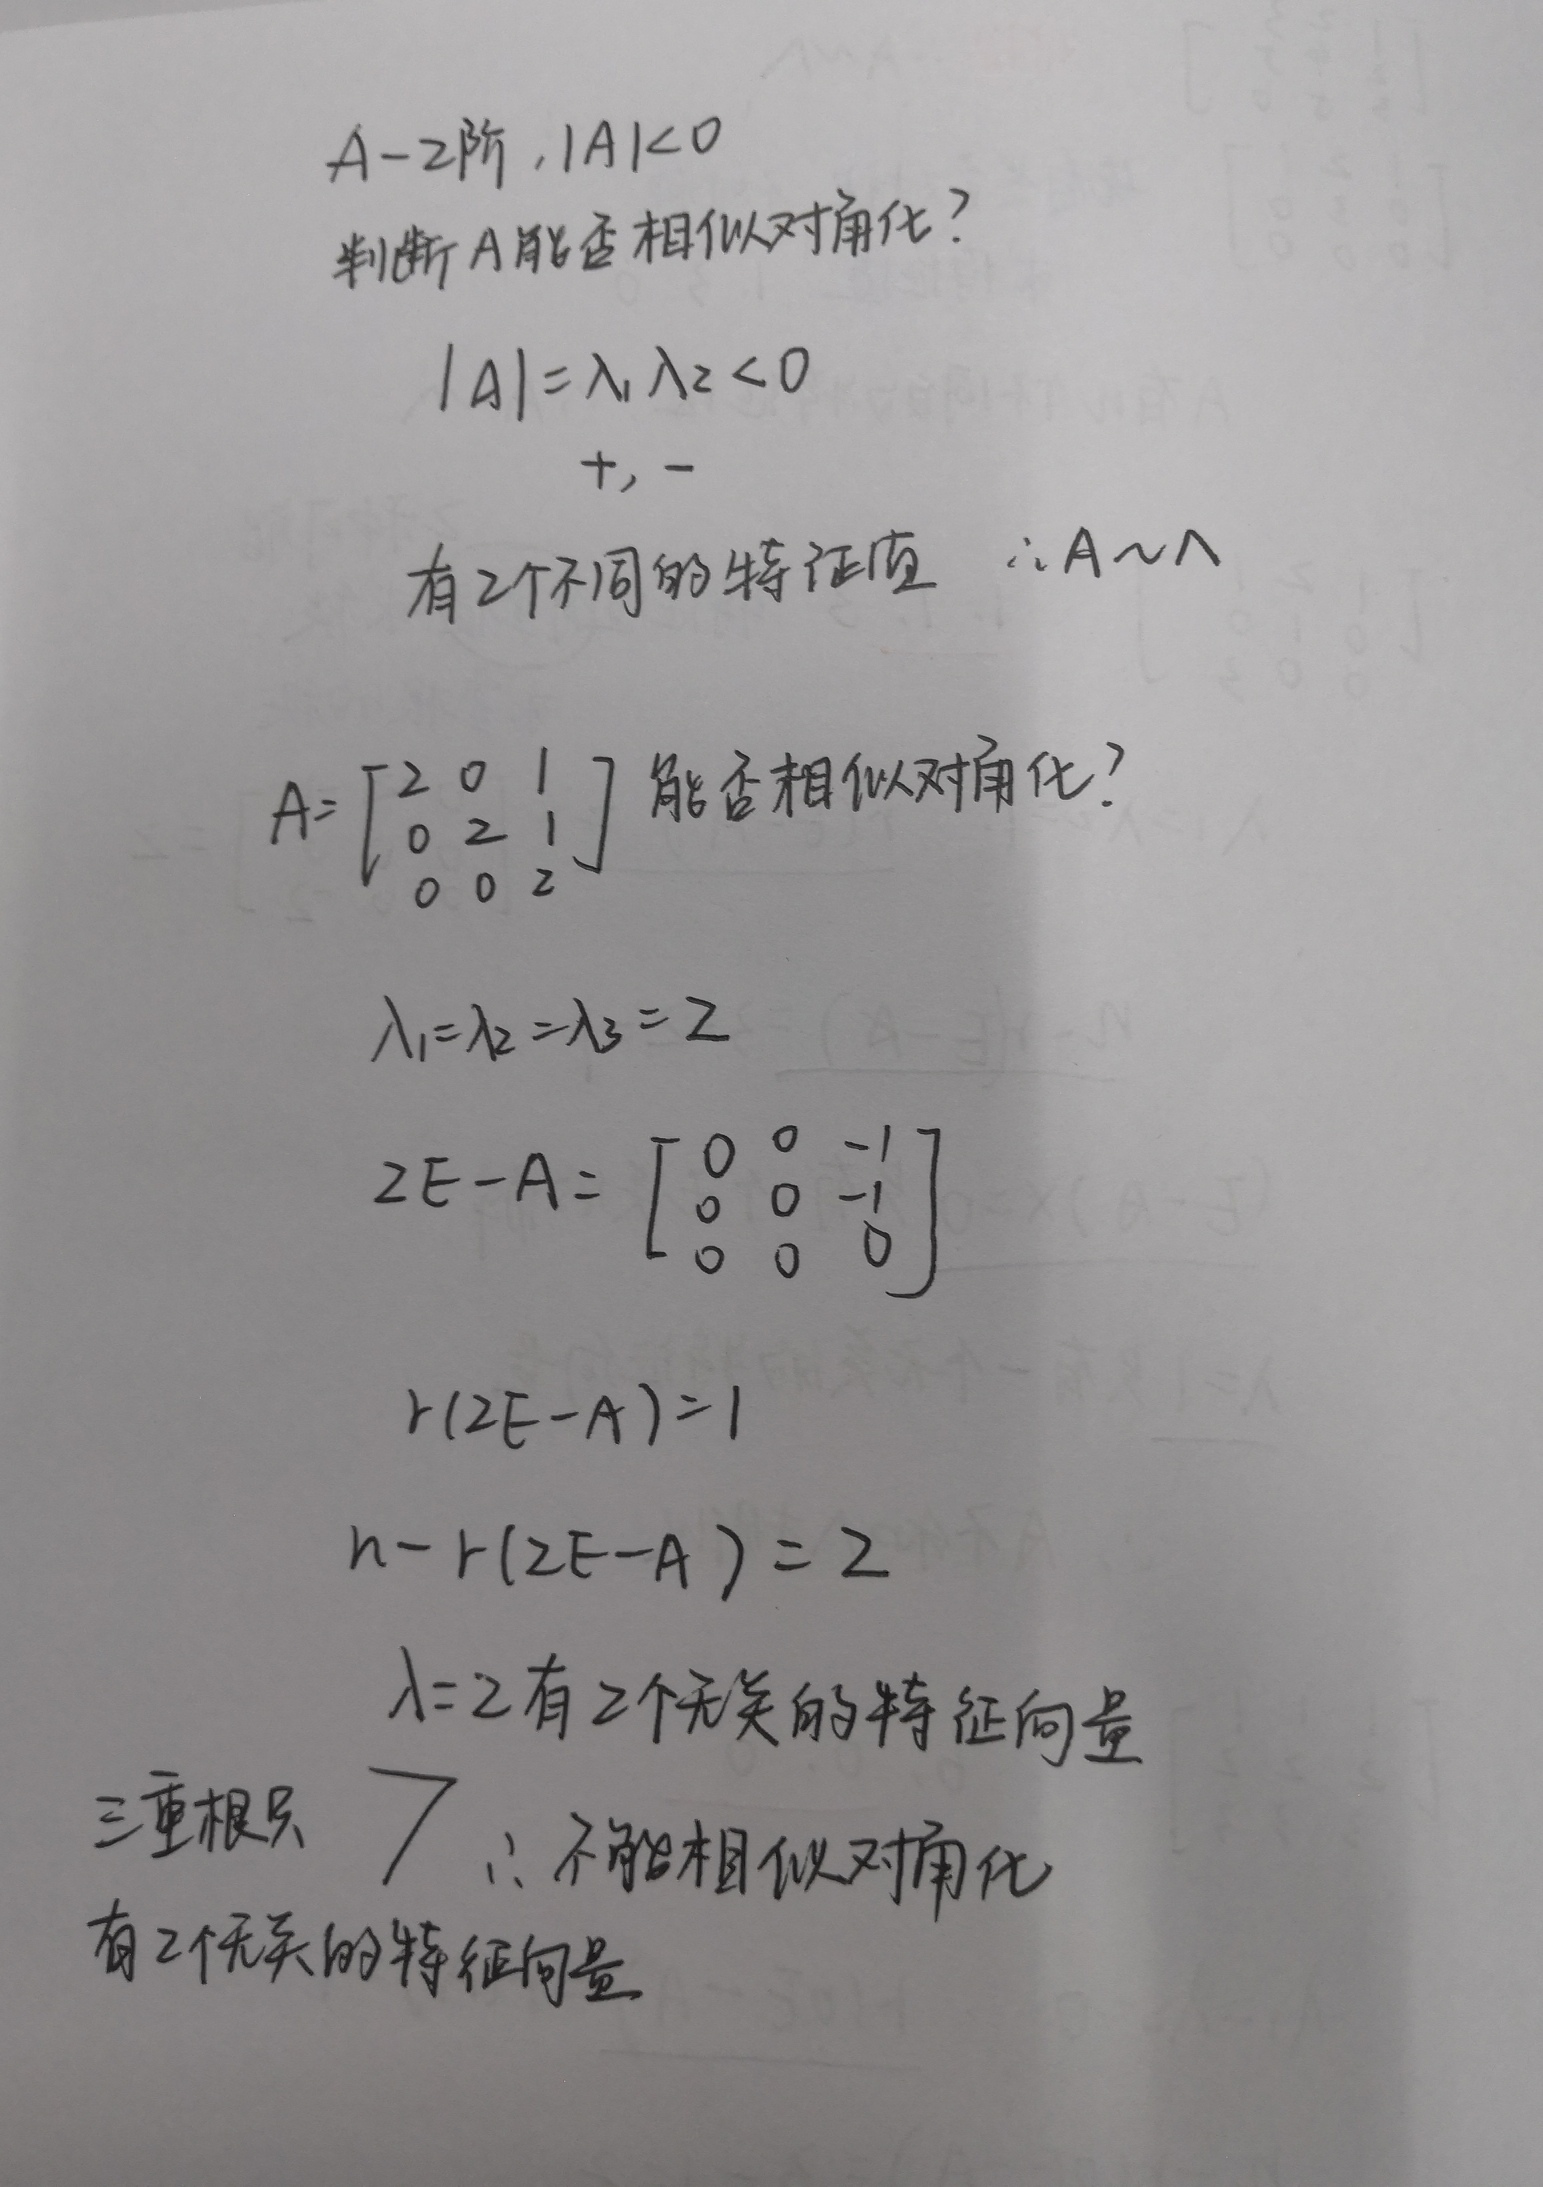 A-2阶,|A|<0
判断A能否相似对角化?
|A|=λ₁λ₂<0
+,-
有2个不同的特征值 ∴A~Λ
A=[2 0 1 能否相似对角化?
0 2 1
0 0 2]
λ₁=λ₂=λ₃=2
2E-A=[0 0 -1
0 0 -1
0 0 0]
r(2E-A)=1
n-r(2E-A)=2
λ=2有2个无关的特征向量
三重根只
∴不能相似对角化
有2个无关的特征向量